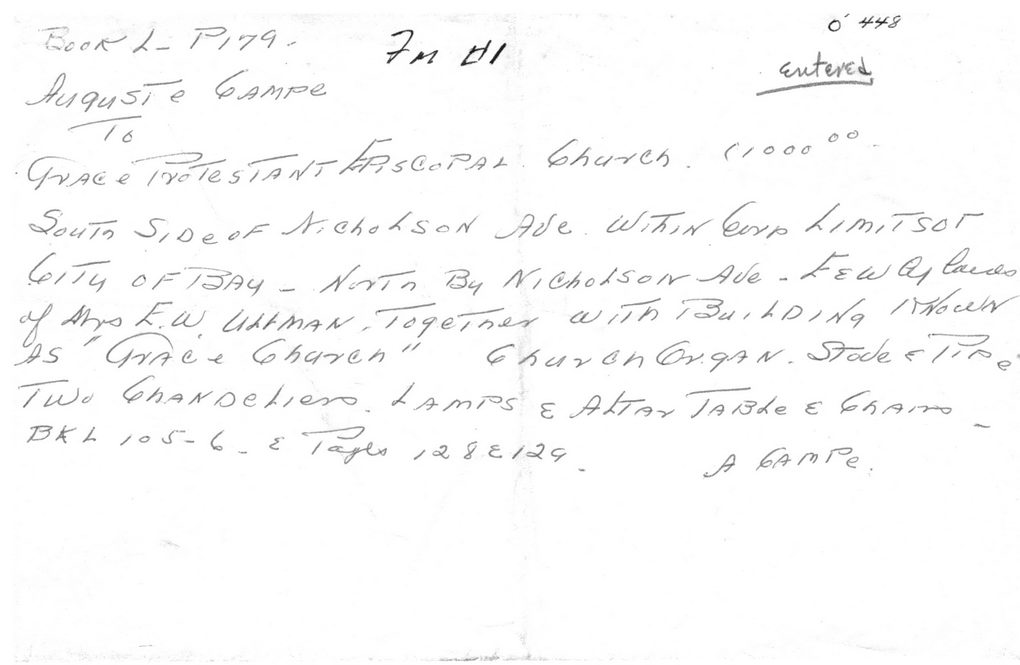 O 448
Book L - P179.
Fm #1
entered
Auguste Campe
To
Grace Protestant Episcopal Church. (1000 00.
South Side of Nicholson Ave. Within Corp Limits of
City of Bay - North By Nicholson Ave - E & W By lands
of Mrs E. W. Ullman. Together with Building Known
As "Grace Church" Church Organ. Stove & Pipe
Two Chandeliers. Lamps & Altar Table & Chairs -
BK L 105-6 - & Pages 128 & 129.
A Campe.